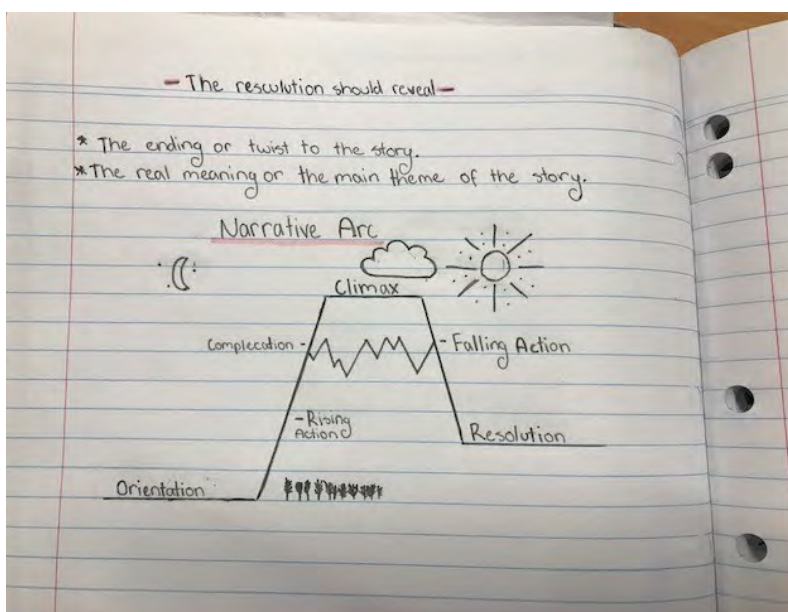 - The resculution should reveal -
* The ending or twist to the story.
* The real meaning or the main theme of the story.
Narrative Arc
Climax
Complecation -
- Falling Action
- Rising
Action
Resolution
Orientation